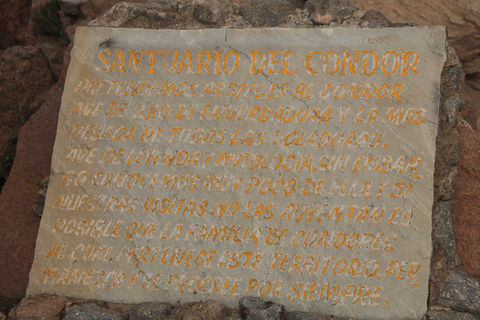 SANTUARIO DEL CONDOR
PRETENDEMOS PROTEGER AL CONDOR,
AVE DE 3,20 DE ENVERGADURA Y LA MAS
PESADA DE TODAS LAS VOLADORAS.
AVE DE LEYENDA Y MITOLOGIA, SIN EMBAR-
GO CONOCEMOS MUY POCO DE ELLA Y SI
NUESTRAS VISITAS NO LAS AUYENTAN ES
POSIBLE QUE LA FAMILIA DE CONDORES
AL CUAL PERTENECE ESTE TERRITORIO, PER-
MANEZCA Y SE ASOCIE POR SIEMPRE.